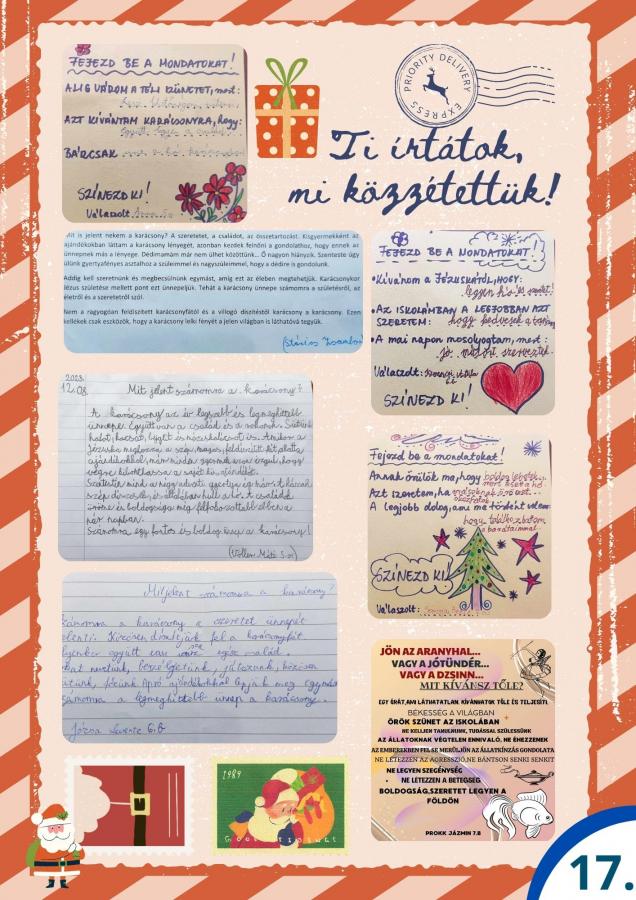 FEJEZD BE A MONDATOKAT!
ALIG VÁROM A TÉLI SZÜNETET, mert:
AZT KÍVÁNTAM KARÁCSONYRA, hogy:
BÁRCSAK
SZÍNEZD KI!
Válaszolt:
PRIORITY DELIVERY
EXPRESS
Ti írtátok,
mi közzétettük!
Mit is jelent nekem a karácsony? A szeretetet, a családot, az összetartozást. Kisgyermekként az
ajándékokban láttam a karácsony lényegét, azonban kezdek felnőni a gondolathoz, hogy ennek az
ünnepnek más a lényege. Dédimamám már nem ülhet közöttünk. Ő nagyon hiányzik. Szenteste úgy
ülünk gyertyafényes asztalhoz a szüleimmel és nagyszüleimmel, hogy a dédire is gondolunk.
Addig kell szeretnünk és megbecsülnünk egymást, amíg ezt az életben megtehetjük. Karácsonykor
Jézus születése mellett pont ezt ünnepeljük. Tehát a karácsony ünnepe számomra a születésről, az
életről és a szeretetről szól.
Nem a nagyogóan feldíszített karácsonyfától és a villogó díszítéstől karácsony a karácsony. Ezen
kellékek csak eszközök, hogy a karácsony lelki fényét a jelen világban is láthatóvá tegyük.
FEJEZD BE A MONDATOKAT!
•Kívánom a JÉZUSKÁTÓL, HOGY:
legyen hó és szünet!
•AZ ISKOLÁMBAN A LEGJOBBAN AZT
SZERETEM: hogy kedvesek a
•A mai napon mosolyogtam, mert:
jó műsort szerveztek.
Válaszolt:
SZÍNEZD KI!
2023.
12.08.
Mit jelent számomra a karácsony?
A karácsony az év legszebb és legmeghittebb
ünnepe. Együtt van a család és a rokonok. Sütünk
halat, kacsát, bejglit és mézeskalácsot is. Amikor a
Jézuska meghozza a szép, magas, feldíszített fát alatta
ajándékokkal, már minden gyermek arra vágyik, hogy
végre kibonthassa a saját kis ajándékát.
szép díszesek, és általában hull a hó. A családok
öröme és boldogsága még felfokozottabb ebben a
pár napban.
Számomra egy fontos és boldog ünnep a karácsony!
Fejezd be a mondatokat!
Annak örülök ma, hogy boldog lehetek..
Azt szeretem, ha másoknak örömöt...
A legjobb dolog, ami ma történt velem:
hogy találkoztam
a barátaimmal.
SZÍNEZD KI!
Válaszolt:
Mit jelent számomra a karácsony?
számomra a karácsony a szeretet ünnepét
jelenti. Közösen díszítjük fel a karácsonyfát
ilyenkor együtt van az egész család.
sokat nevetünk, beszélgetünk, játszunk, közösen
sütünk, főzünk. Apró ajándékokkal lepjük meg egymást
számomra a legmeghittebb ünnep a karácsony.
Józsa Levente 6.B
JÖN AZ ARANYHAL...
VAGY A JÓTÜNDÉR...
VAGY A DZSINN...
MIT KÍVÁNSZ TŐLE?
EGY ÓRÁT, AMI LÁTHATATLAN. KÍVÁNHATOK TŐLE ÉS TELJESÍTI.
BÉKESSÉG A VILÁGBAN
ÖRÖK SZÜNET AZ ISKOLÁBAN
NE KELLJEN TANULNUNK, TUDÁSSAL SZÜLESSÜNK
AZ ÁLLATOKNAK VÉGTELEN ENNIVALÓ, NE ÉHEZZENEK
AZ EMBEREKBEN FEL SE MERÜLJÖN AZ ÁLLATKÍNZÁS GONDOLATA
NE LÉTEZZEN AZ AGRESSZIÓ, NE BÁNTSON SENKI SENKIT
NE LEGYEN SZEGÉNYSÉG
NE LÉTEZZEN A BETEGSÉG
BOLDOGSÁG, SZERETET LEGYEN A
FÖLDÖN
PROKK JÁZMIN 7.B
1989
17.